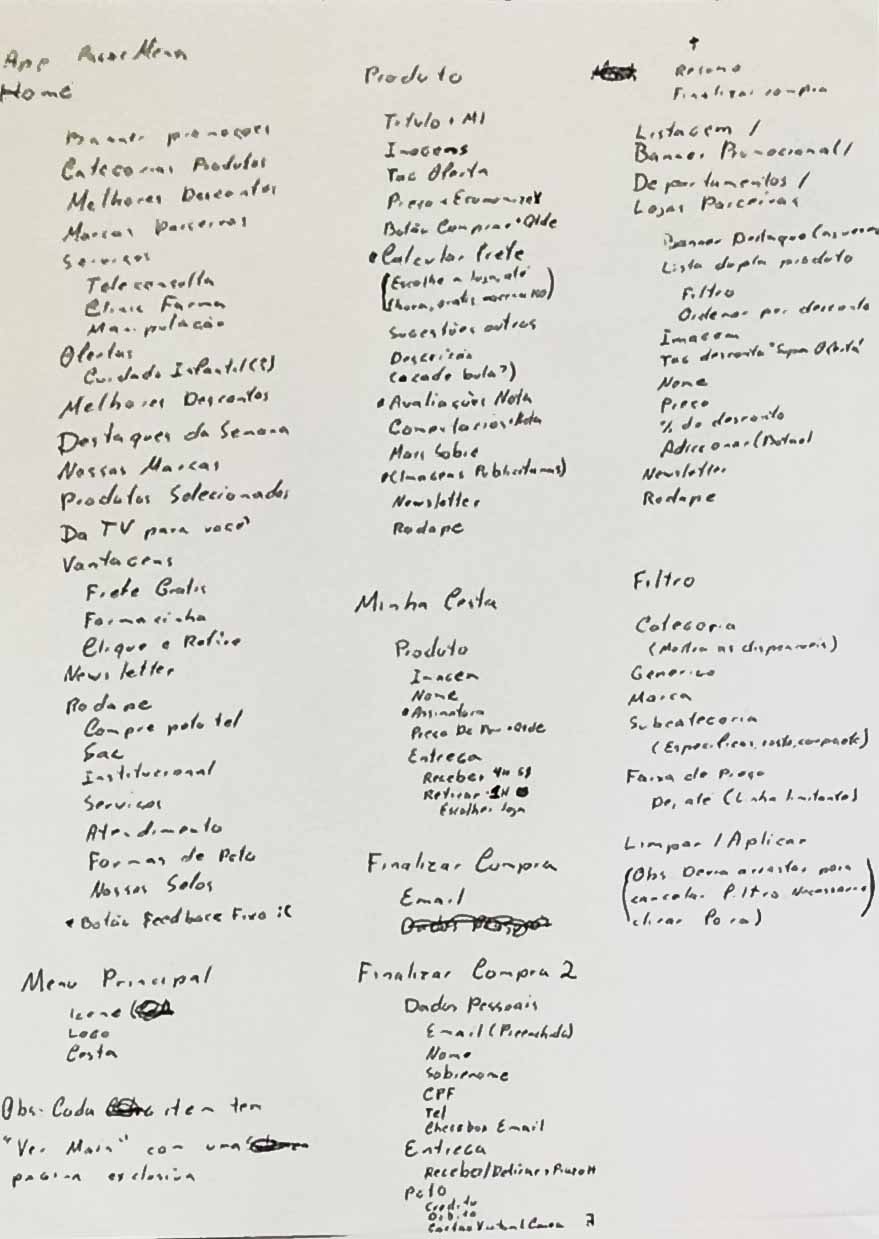 App Pague Menos
Home
Banner promoções
Categorias Produtos
Melhores Descontos
Marcas Parceiras
Serviços
Teleconsulta
Clinic Farma
Manipulação
Ofertas
Cuidado Infantil(?)
Melhores Descontos
Destaques da Semana
Nossas Marcas
Produtos Selecionados
Da TV para você
Vantagens
Frete Gratis
Farmacinha
Clique e Retire
Newsletter
Rodape
Compre pelo tel
Sac
Institucional
Serviços
Atendimento
Formas de Pgto
Nossos Selos
• Botão Feedback Fixo :(
Menu Principal
Icone
Logo
Cesta
Obs. Cada item tem
"Ver Mais" com uma
pagina exclusiva
Produto
Titulo + M1
Imagens
Tag Oferta
Preço + Economize
Botão Comprar + Qtde
• Calcular Frete
(Escolhe a loja, até
1hora, gratis
Sugestões outros
Descrição
(cade bula?)
• Avaliações Nota
Comentarios + Nota
Mais Sobre
•(Imagens Publicitarias)
Newsletter
Rodape
Minha Cesta
Produto
Imagem
Nome
• Assinatura
Preço De Por + Qtde
Entrega
Receber 4H
Retirar 1H
Escolher loja
Finalizar Compra
Email
Finalizar Compra 2
Dados Pessoais
Email (Preenchido)
Nome
Sobrenome
CPF
Tel
Checkbox Email
Entrega
Receber/Retirar + Prazo H
Pgto
Credito
Debito
Cartao Virtual Caixa
↑
Resumo
Finalizar compra
Listagem /
Banner Promocional /
Departamentos /
Lojas Parceiras
Banner Destaque
Lista dupla produto
Filtro
Ordenar por desconto
Imagem
Tag desconto "Super Oferta"
Nome
Preço
% de desconto
Adicionar (Botao)
Newsletter
Rodape
Filtro
Categoria
(Mostra as disponiveis)
Generico
Marca
Subcategoria
(Especificas, rosto,
Faixa de Preço
De, até (Linha limitante)
Limpar / Aplicar
(Obs Deveria arrastar para
cancelar Filtro Necessario
clicar Fora)